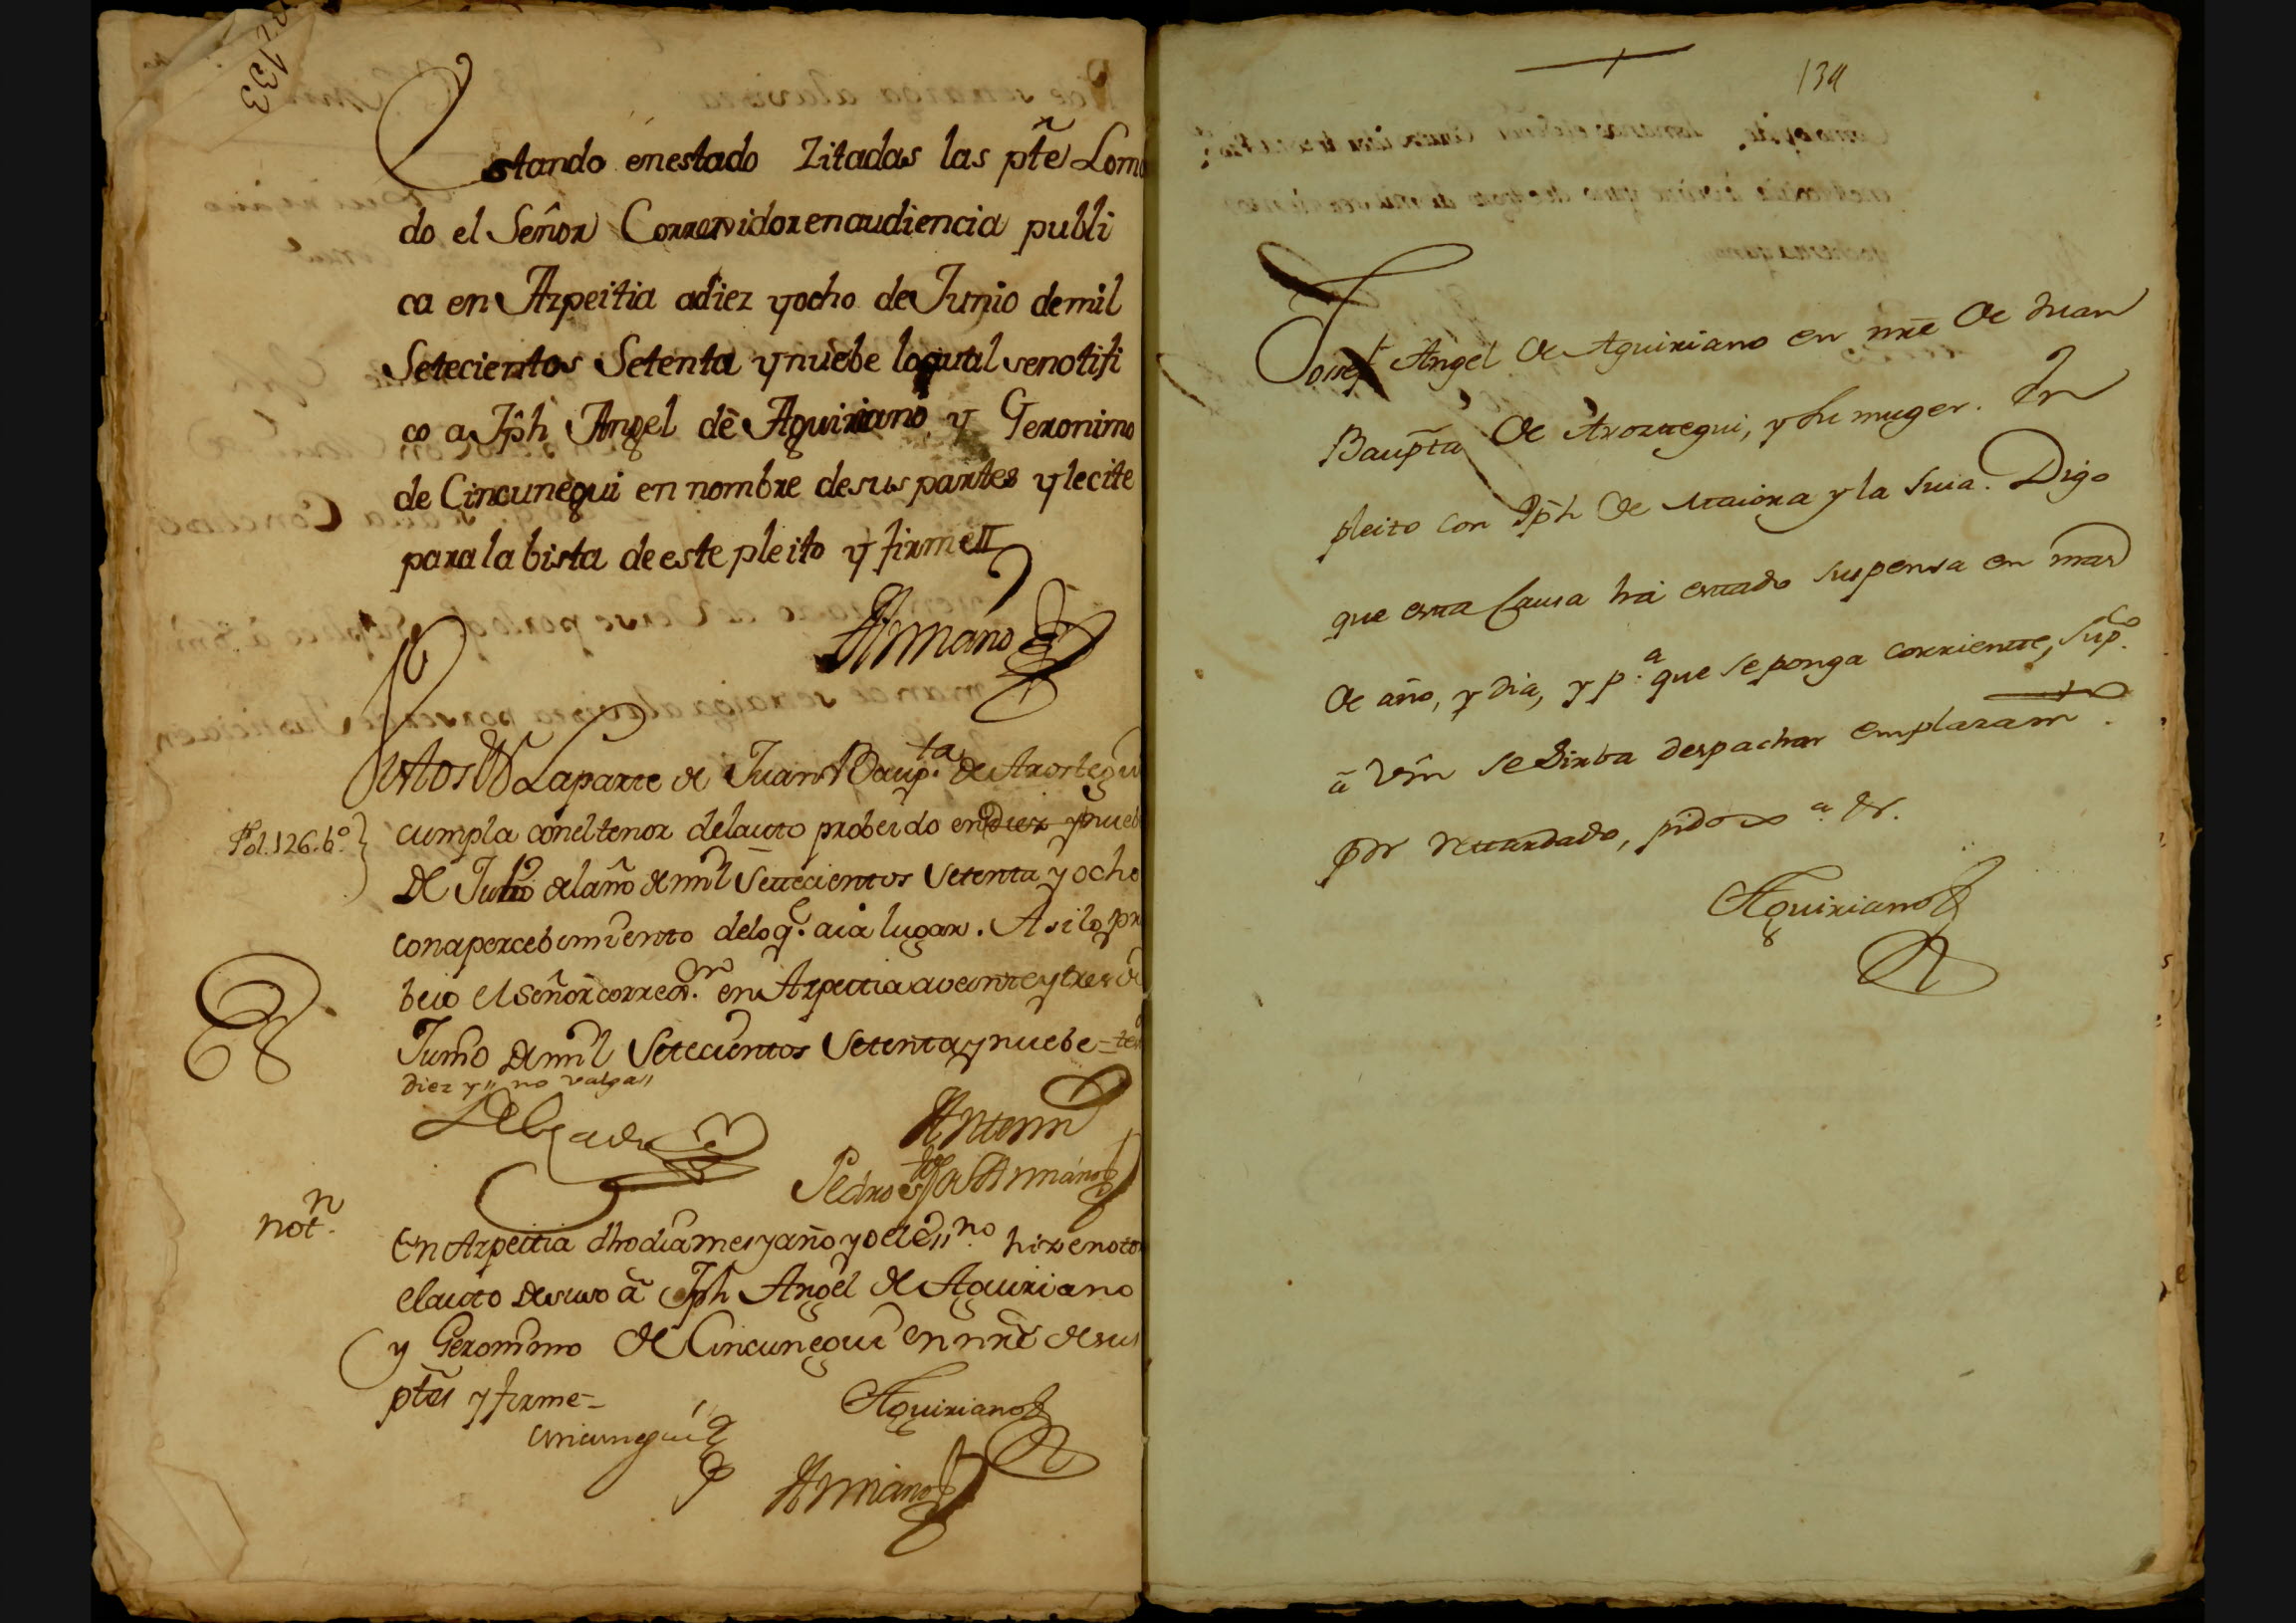 133
Estando en estado Zitadas las ptē Lom
do el Señor Correxidor en audiencia publi
ca en Azpeitia a diez y ocho de Junio de mil
Setecientos Setenta y nuebe lo qual se notifi
co a Jph Angel de Aguiriano y Geronimo
de Cincunegui en nombre de sus partes y le cite
para la bista de este pleito y firme
Armano
Autos La parte de Juan Baup.ta de Arostegui
Fol. 126. b.o
cumpla con el tenor del auto probeido en diez y nueb
de Julio del año de mil Settecientos Setenta y ocho
con apercebimiento de lo q.e aia lugar. Asi lo pr
beio el Señor corre.or en Azpeitia a veinte y tres de
Junio de mil Setecientos Setenta y nuebe = te
diez y,, no valga,,
Delgado
Ante mi
Pedro de Armano
not.n
En Azpeitia dho dia mes y año yo el es.no hize noto
el auto de suso a Jph Angel de Aguiriano
y Geronimo de Cincunegui en nrē de sus
ptēs y firme =
Aguiriano
Cincunegui
Armano
134
Joseph Angel de Aguiriano en nrē de Juan
Baupta de Arozttegui, y su muger. En
pleito con Jph de Maiora y la suia. Digo
que esta Causa ha estado suspensa en mas
de año, y dia, y p.a que se ponga corriente, Sup.co
a Vm se sirba despachar emplazam.to
por retardado, pido
Aguiriano